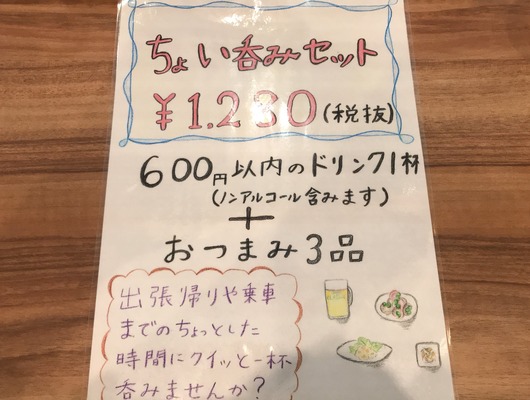 ちょい呑みセット
¥1.280(税抜)
600円以内のドリンク1杯
(ノンアルコール含みます)
+
おつまみ3品
出張帰りや乗車
までのちょっとした
時間にクイッと一杯
呑みませんか?